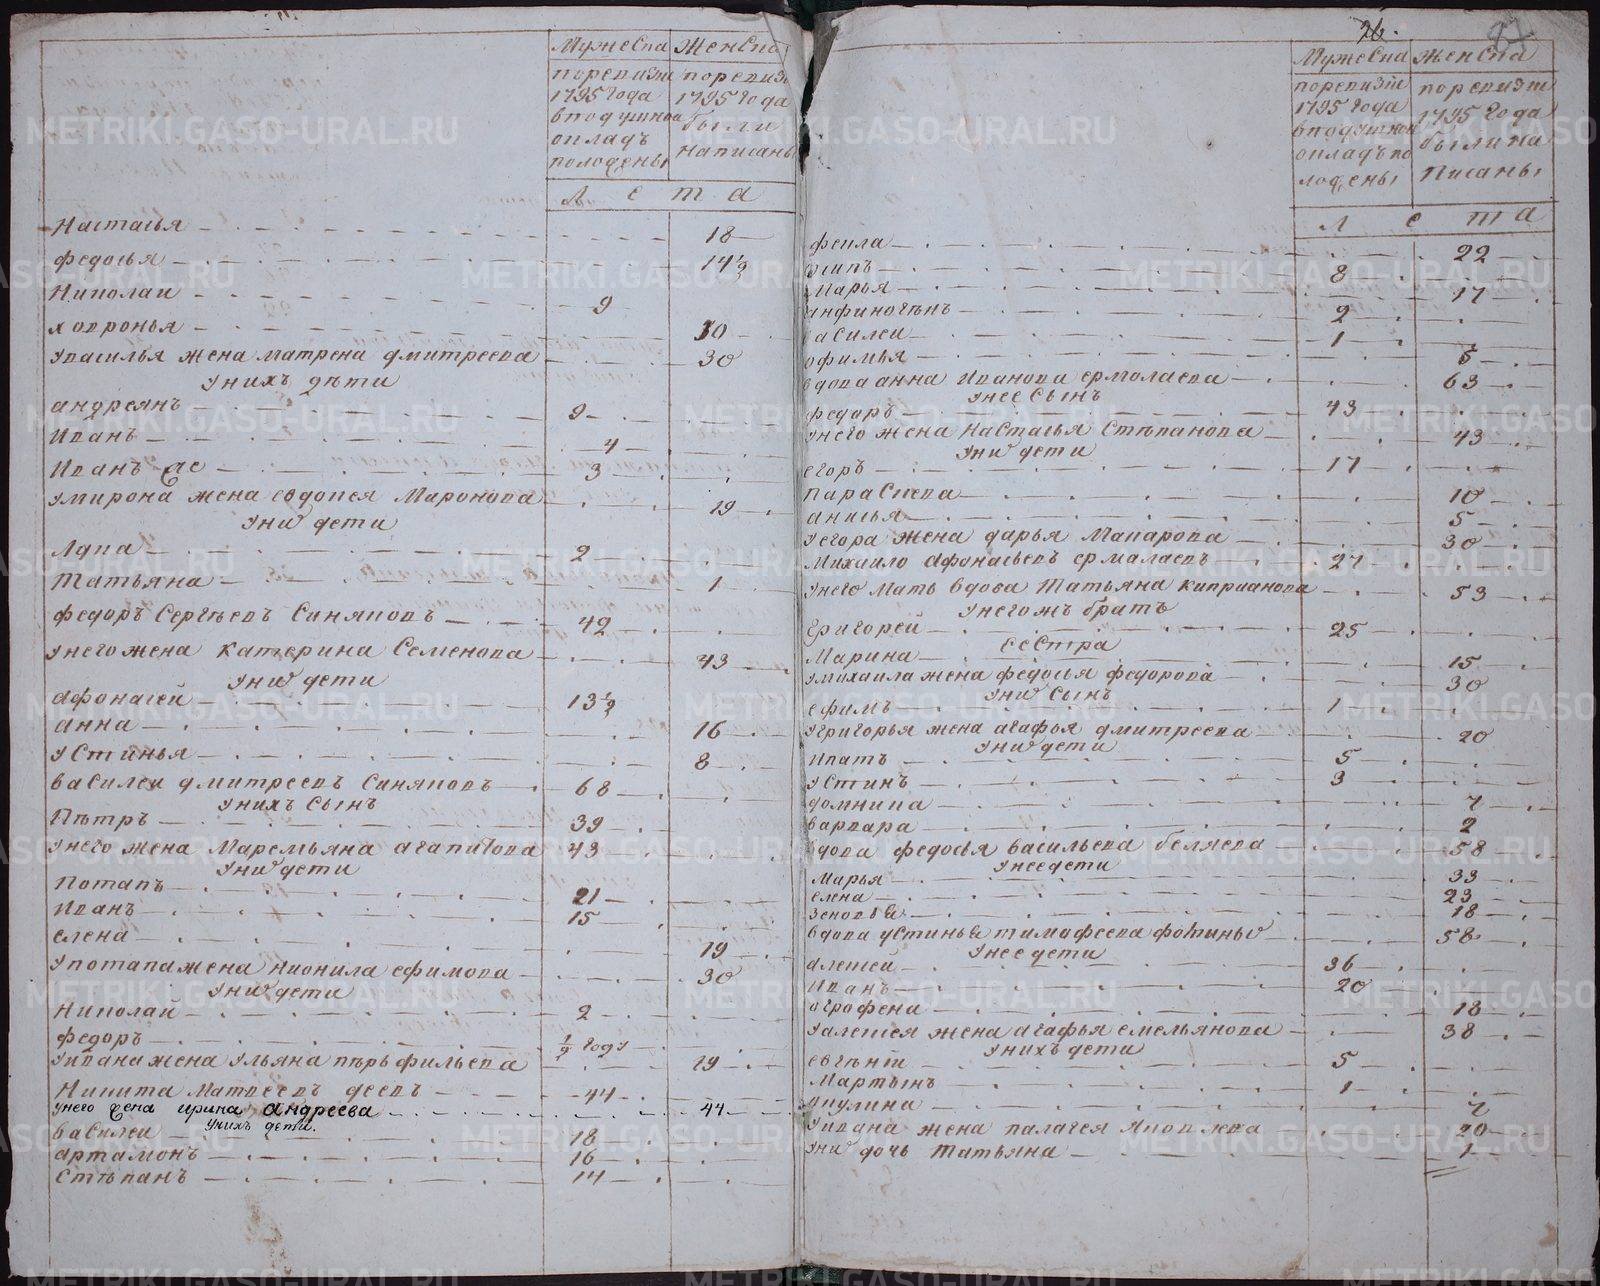 Мужеска Женска
поревизiи 1795 года вподушной окладъ положены
поревизiи 1795 года были написаны
Лета
Настасья 18
федосья 14½
Николаи 9
ховронья 10
Увасилья жена матрена дмитреева 30
Унихъ дѣти
андреянъ 9
Иванъ 4
Иванъ же 3
Умирона жена евдокея Миронова 19
Униⷯ дети
Лука 2
Татьяна 1
федоръ Сергѣевъ Синяковъ 42
Унего жена Катерина Семенова 43
Униⷯ дети
Афонасей 13½
анна 16
Устинья 8
василеи дмитреевъ Синяковъ 68
Унихъ Сынъ
Пѣтръ 39
Унего жена Маремьяна агапитова 43
Униⷯ дети
Потапъ 21
Иванъ 15
елена 19
Употапа жена нионила ефимова 30
Униⷯ дети
Николай 2
федоръ ½ году
Уивана жена Ульяна пѣрьфильева 19
Никита Матвеевъ деевъ 44
унего жена ирина Андреева 44
Унихъ дети.
василеи 18
артамонъ 16
Стѣпанъ 14
26.
27
Мужеска Женска
поревизiе 1795 года вподушной окладъ положены
поревизiи 1795 года были написаны
Лета
фекла 22
осипъ 8
Марья 17
анфиногѣнъ 2
василеи 1
офимья 5
вдова анна Иванова ермолаева 63
Унее Сынъ
федоръ 43
Унего жена Настасья Стѣпанова 43
Униⷯ дети
егоръ 17
параскева 10
анисья 5
Уегора жена дарья Макарова 30
Михаило афонасьевъ ермалаевъ 27
Унего Мать вдова Татьяна киприанова 53
Унегожъ братъ
Григорей 25
сестра
Марина 15
Умихаила жена федосья федорова 30
Униⷯ Сынъ
ефимъ 1
Угригорья жена агафья дмитреева 20
Униⷯ дети
Ипатъ 5
Устинъ 3
домника 7
варвара 2
вдова федосья васильева беляева 58
Унее дети
Марья 33
елена 23
Зеновья 18
вдова устинья тимофеева фотиныⷯ 58
Унее дети
алексей 36
Иванъ 20
ографена 18
Уалексея жена агафья емельянова 38
Унихъ дети
евгѣнiй 5
Мартынъ 1
акулина 7
Уивана жена палагея Яковлева 20
Униⷯ дочь Татьяна 1
METRIKI.GASO-URAL.RU